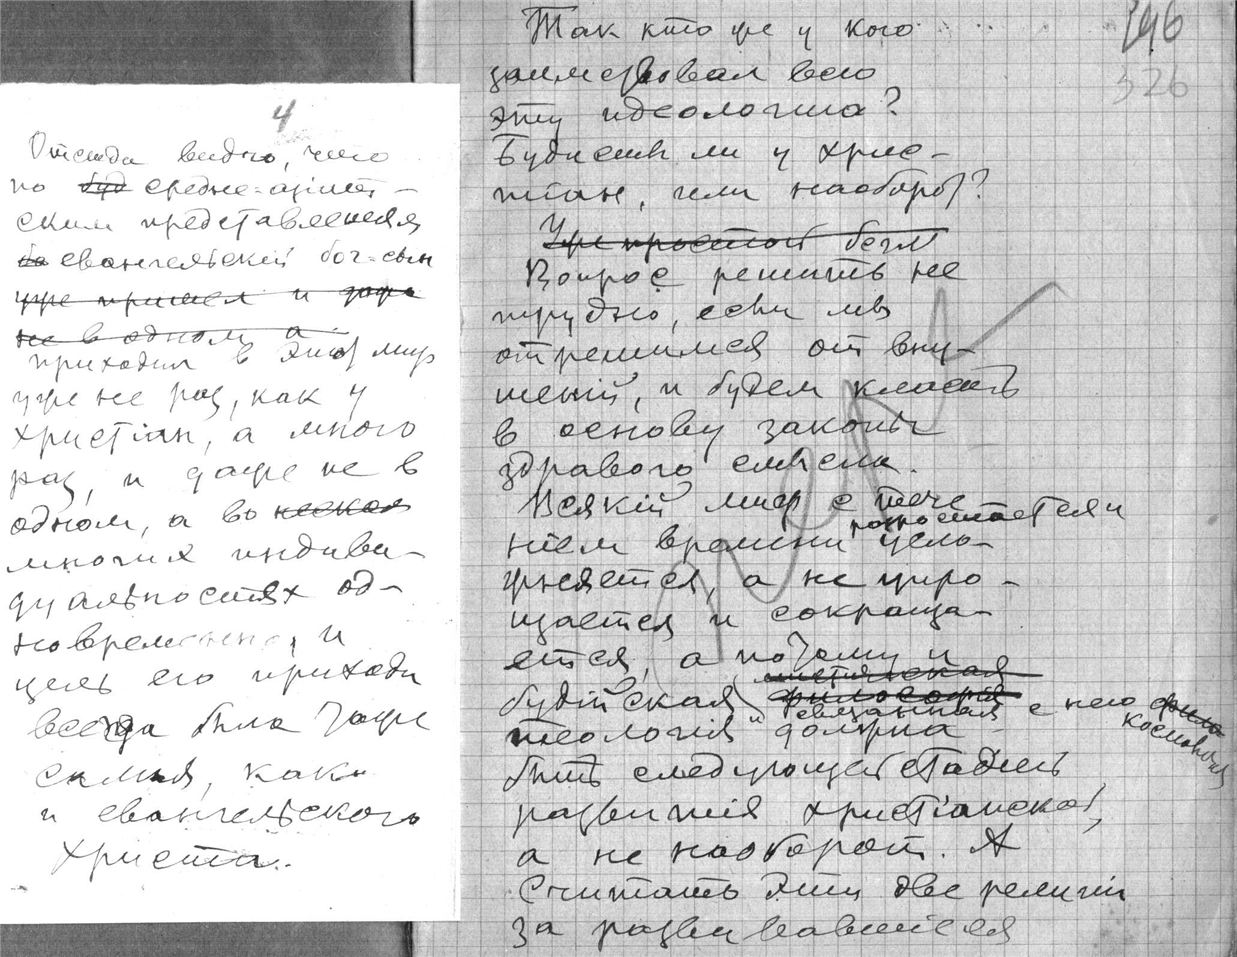 4
Отсюда видно, что
по буд средне-азіат-
ским представленіям
ба евангельскій бог-сын
уже пришел и даже
не в одном, а
приходил в этот мир
уже не раз, как у
христіан, а много
раз, и даже не в
одном, а во
многих индиви-
дуальностях од-
новременно, и
цель его прихода
всегда была та же
самая, как
и евангельского
Христа.
396
326
Так кто же у кого
заимствовал всю
эту идеологию?
Буддисты ли у хрис-
тиан, или наоборот?
Уже простой бегл
Вопрос решить не
трудно, если мы
отрешимся от вну-
шеній, и будем класть
в основу законы
здравого смысла.
Всякій миф с тече-
ніем времени разростается и усло-
жняется, а не упро-
щается и сокраща-
ется, а потому и
мистическая
будійская философія
теологія и связанная с нею фило
космологія
должна
быть следующей стадіей
развитія христіанской,
а не наоборот. А
считать эти две религіи
за развивавшіеся